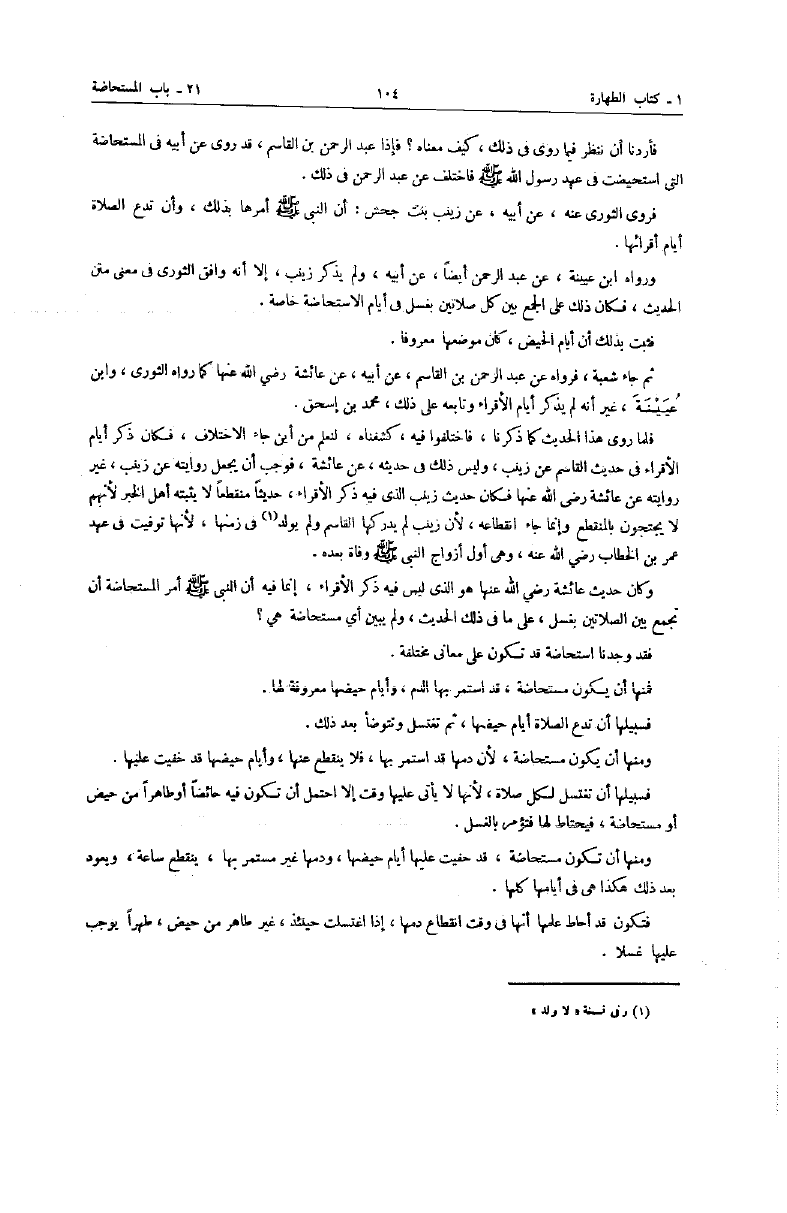 ١ - كتاب الطهارة ١٠٤ ٢١ - باب المستحاضة
فأردنا أن ننظر فيما روى فى ذلك ، كيف معناه ؟ فإذا عبد الرحمن بن القاسم ، قد روى عن أبيه فى المستحاضة
التى استحيضت فى عهد رسول الله ﷺ فاختلف عن عبد الرحمن فى ذلك .
فروى الثورى عنه ، عن أبيه ، عن زينب بنت جحش : أن النبى ﷺ أمرها بذلك ، وأن تدع الصلاة
أيام أقرائها .
ورواه ابن عيينة ، عن عبد الرحمن أيضاً ، عن أبيه ، ولم يذكر زينب ، إلا أنه وافق الثورى فى معنى متن
الحديث ، فكان ذلك على الجمع بين كل صلاتين بغسل فى أيام الاستحاضة خاصة .
فثبت بذلك أن أيام الحيض ، كان موضعها معروفا .
ثم جاء شعبة ، فرواه عن عبد الرحمن بن القاسم ، عن أبيه ، عن عائشة رضي الله عنها كما رواه الثورى ، وابن
عُيَيْنَةَ ، غير أنه لم يذكر أيام الأقراء وتابعه على ذلك ، محمد بن إسحق .
فلما روى هذا الحديث كما ذكرنا ، فاختلفوا فيه ، كشفناه ، لنعلم من أين جاء الاختلاف ، فكان ذكر أيام
الأقراء فى حديث القاسم عن زينب ، وليس ذلك فى حديثه ، عن عائشة ، فوجب أن يجعل روايته عن زينب ، غير
روايته عن عائشة رضى الله عنها فكان حديث زينب الذى فيه ذكر الأقراء ، حديثاً منقطعاً لا يثبته أهل الخبر لأنهم
لا يحتجون بالمنقطع وإنما جاء انقطاعه ، لأن زينب لم يدركها القاسم ولم يولد(١) فى زمنها ، لأنها توفيت فى عهد
عمر بن الخطاب رضي الله عنه ، وهى أول أزواج النبى ﷺ وفاة بعده .
وكان حديث عائشة رضي الله عنها هو الذى ليس فيه ذكر الأقراء ، إنما فيه أن النبى ﷺ أمر المستحاضة أن
تجمع بين الصلاتين بغسل ، على ما فى ذلك الحديث ، ولم يبين أي مستحاضة هي ؟
فقد وجدنا استحاضة قد تكون على معانى مختلفة .
فمنها أن يكون مستحاضة ، قد استمر بها الدم ، وأيام حيضها معروفة لها .
فسبيلها أن تدع الصلاة أيام حيضها ، ثم تغتسل وتتوضأ بعد ذلك .
ومنها أن يكون مستحاضة ، لأن دمها قد استمر بها ، فلا ينقطع عنها ، وأيام حيضها قد خفيت عليها .
فسبيلها أن تغتسل لكل صلاة ، لأنها لا يأتى عليها وقت إلا احتمل أن تكون فيه حائضاً أو طاهراً من حيض
أو مستحاضة ، فيحتاط لها فتؤمر بالغسل .
ومنها أن تكون مستحاضة ، قد خفيت عليها أيام حيضها ، ودمها غير مستمر بها ، ينقطع ساعة ، ويعود
بعد ذلك هكذا هى فى أيامها كلها .
فتكون قد أحاط علمها أنها فى وقت انقطاع دمها ، إذا اغتسلت حينئذ ، غير طاهر من حيض ، طهراً يوجب
عليها غسلا .
(١) وفى نسخة « لا ولد »